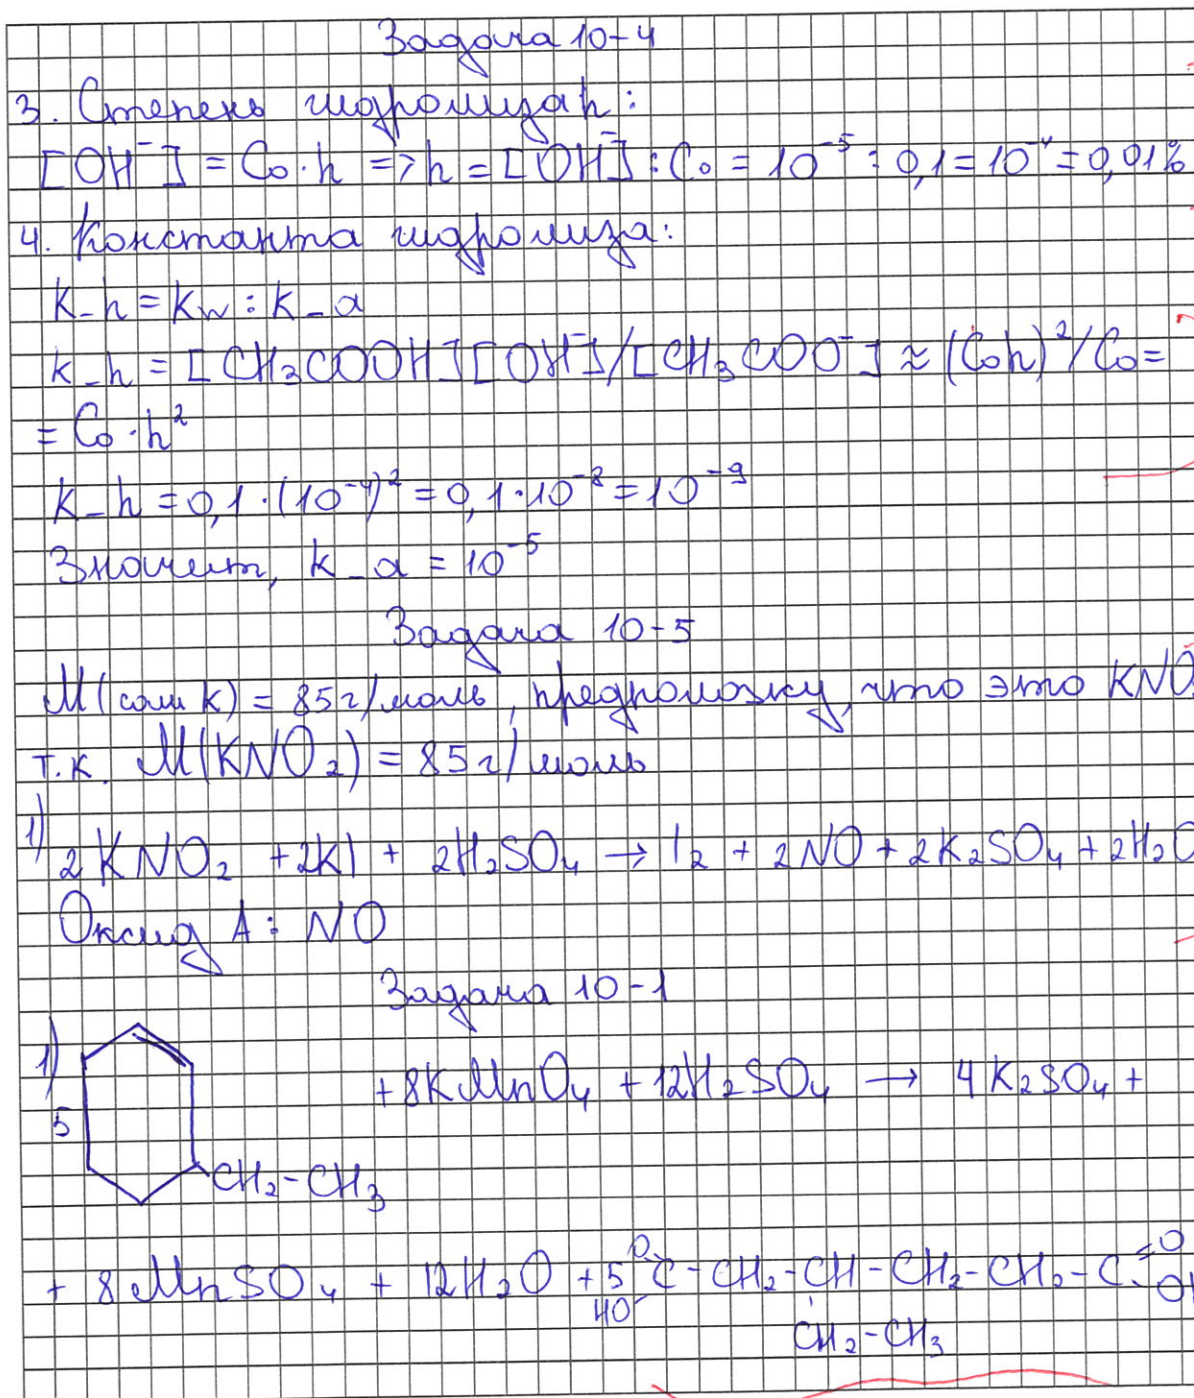 Задача 10-4
3. Степень гидролиза h:
[OH⁻] = C₀·h => h = [OH⁻] : C₀ = 10⁻⁵ : 0,1 = 10⁻⁴ = 0,01%
4. Константа гидролиза:
K_h = Kw : K_a
K_h = [CH₃COOH][OH⁻]/[CH₃COO⁻] ≈ (C₀h)²/C₀ =
= C₀·h²
K_h = 0,1·(10⁻⁴)² = 0,1·10⁻⁸ = 10⁻⁹
Значит, K_a = 10⁻⁵
Задача 10-5
M(соли K) = 85 г/моль, предположу, что это KNO
т.к. M(KNO₂) = 85 г/моль
1) 2KNO₂ + 2KI + 2H₂SO₄ → I₂ + 2NO + 2K₂SO₄ + 2H₂O
Оксид A: NO
Задача 10-1
1) 5 CH₂-CH₃ + 8KMnO₄ + 12H₂SO₄ → 4K₂SO₄ +
+ 8MnSO₄ + 12H₂O + 5 O HO C-CH₂-CH-CH₂-CH₂-C =O OH
CH₂-CH₃